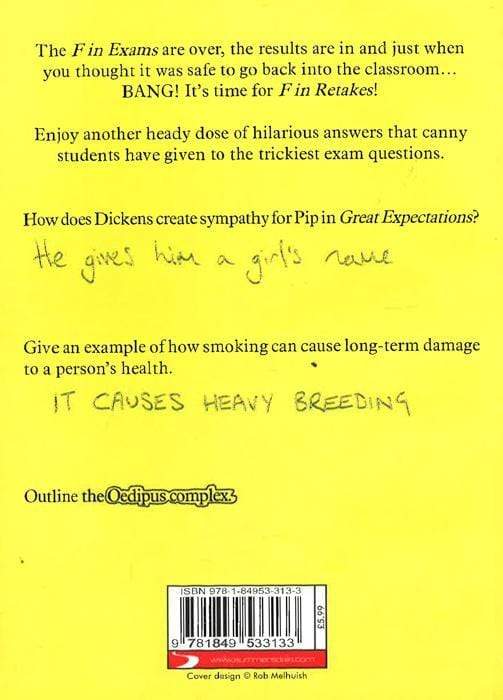 The F in Exams are over, the results are in and just when
you thought it was safe to go back into the classroom…
BANG! It's time for F in Retakes!
Enjoy another heady dose of hilarious answers that canny
students have given to the trickiest exam questions.
How does Dickens create sympathy for Pip in Great Expectations?
He gives him a girl's name
Give an example of how smoking can cause long-term damage
to a person's health.
IT CAUSES HEAVY BREEDING
Outline the Oedipus complex.
ISBN 978-1-84953-313-3
£5.99
9 781849 533133
www.summersdale.com
Cover design © Rob Melhuish